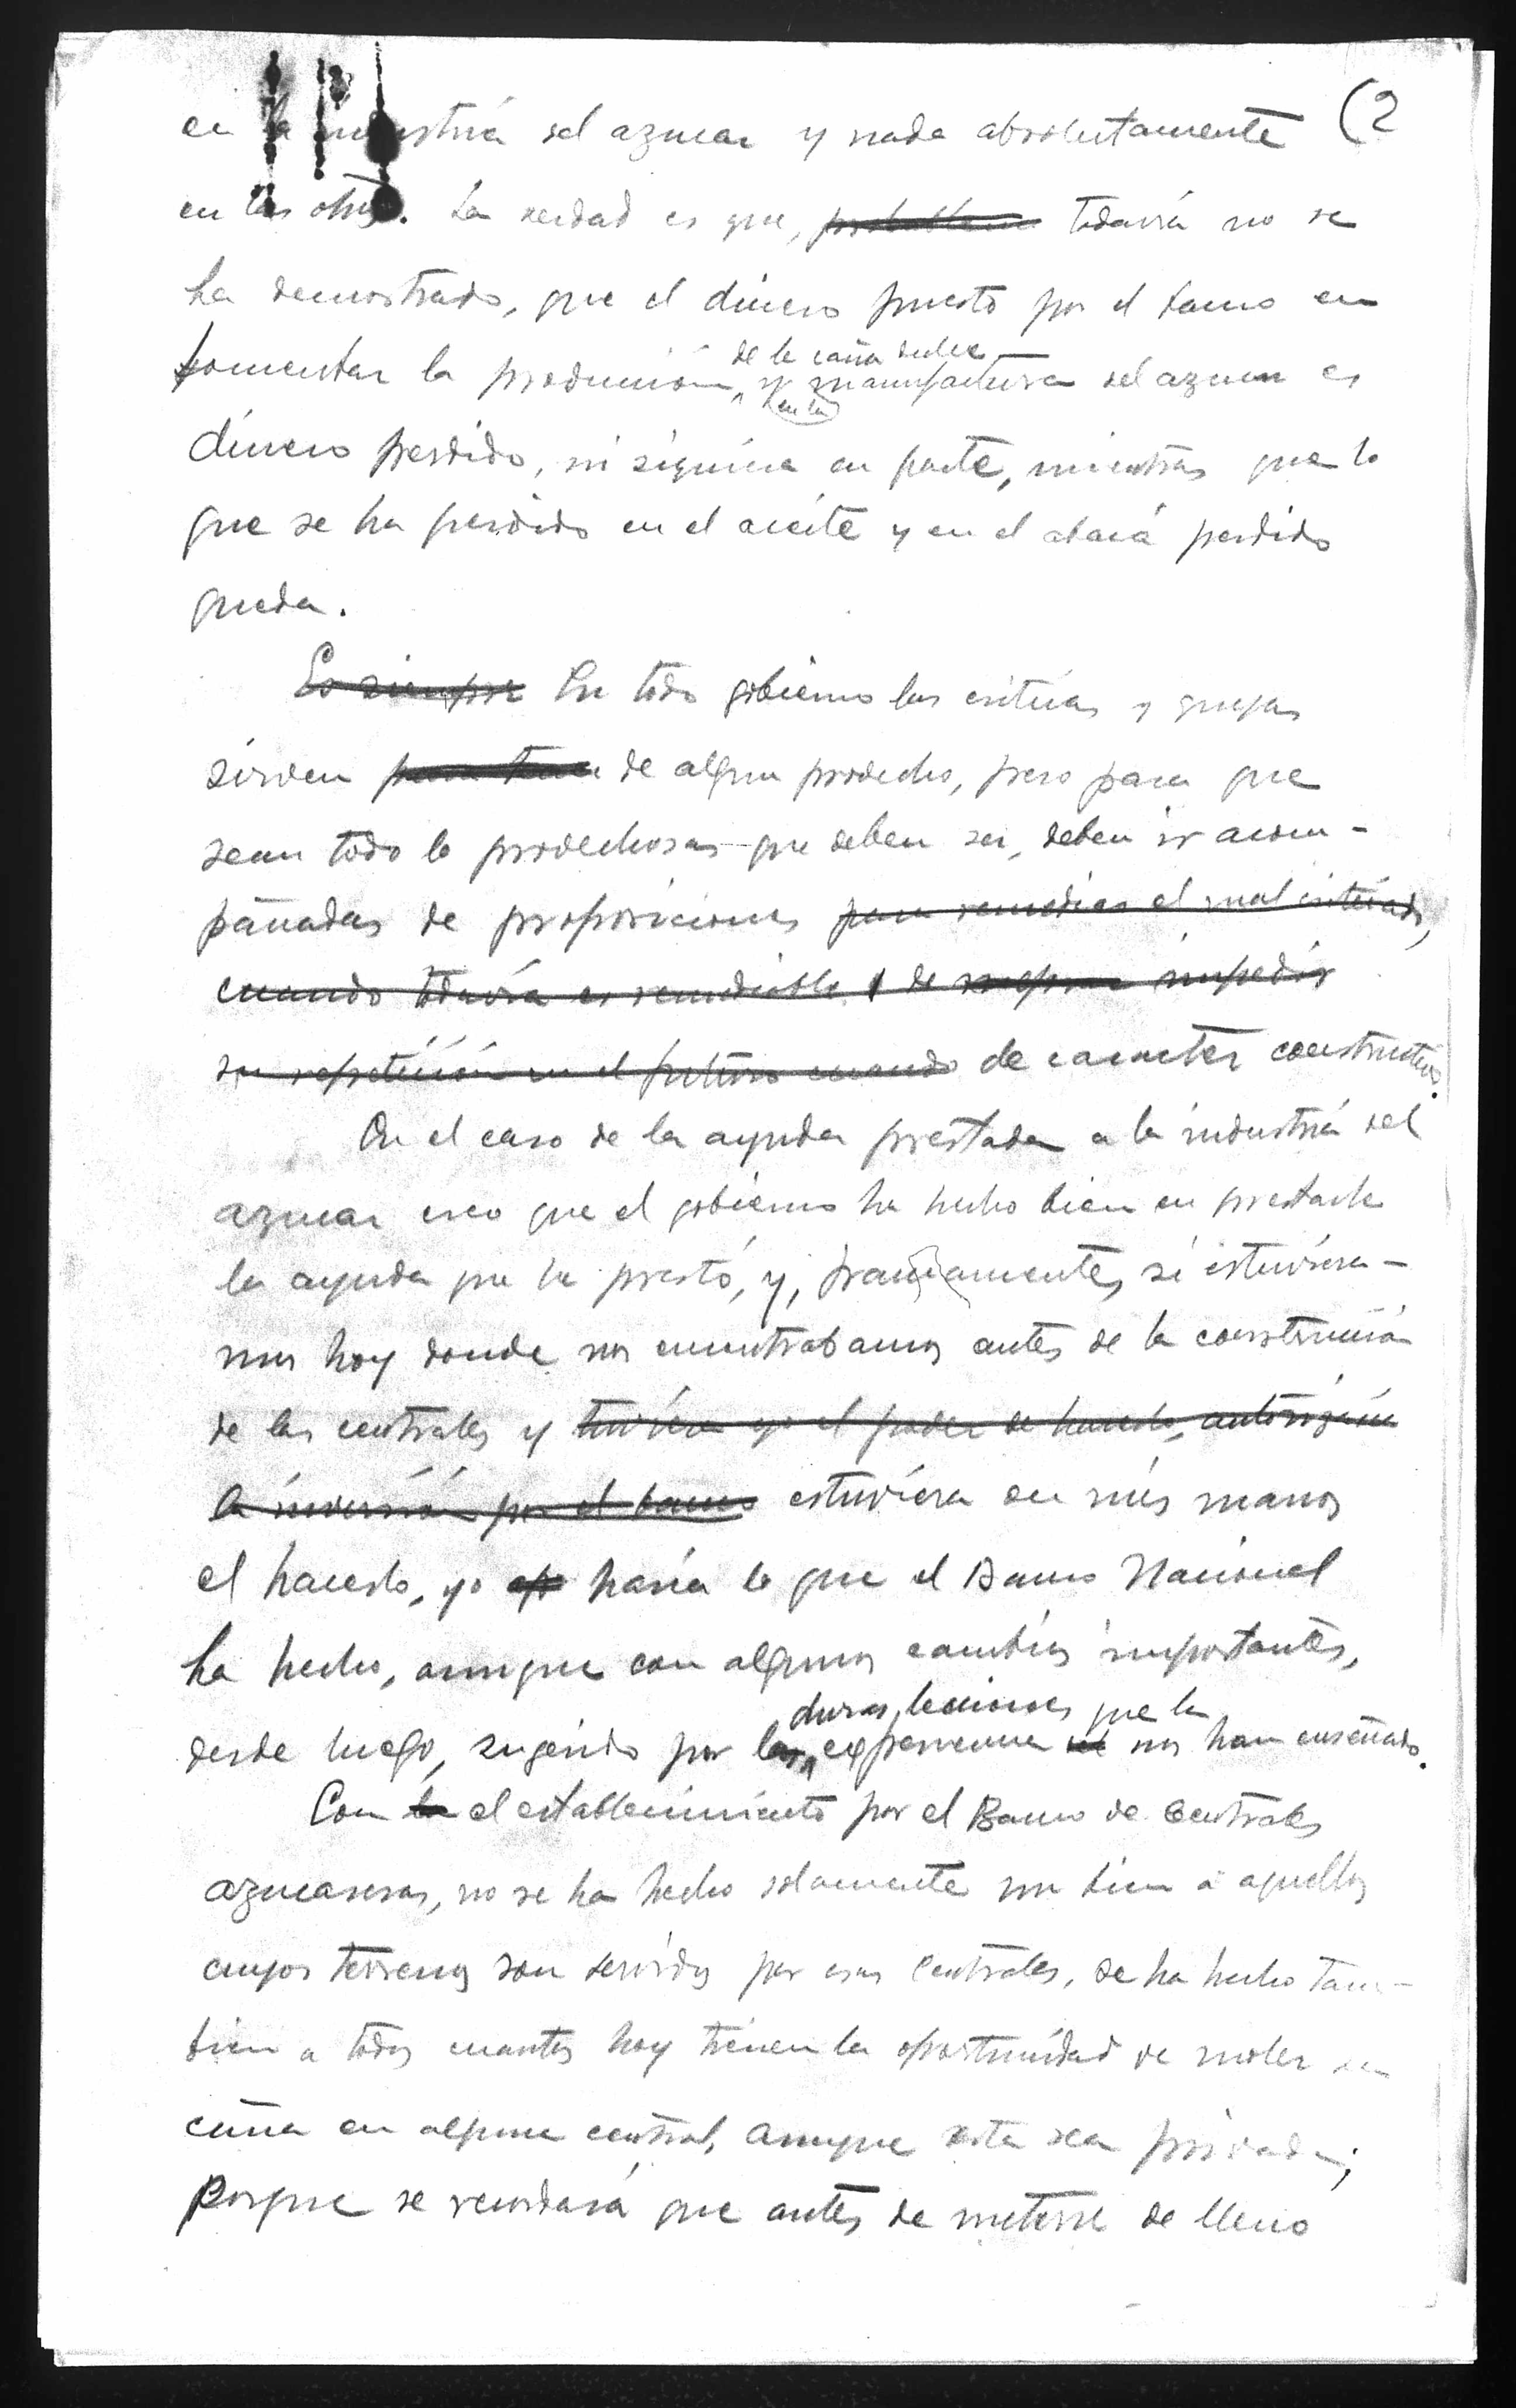 (2
en la industria del azucar y nada absolutamente
en las otras. La verdad es que, todavia no se
ha demostrado, que el dinero puesto por el banco en
fomentar la produccion de la caña dulce y en la manufactura del azucar es
dinero perdido, ni siquiera en parte, mientras que lo
que se ha perdido en el aceite y en el abacá perdido
queda.
Es siempre En todo gobierno las criticas y quejas
sirven para tener de algun provecho, pero para que
sean todo lo provechosas que deben ser, deben ir acom-
pañadas de proposiciones para remediar el mal criticado,
cuando todavia es remediable y de impedir
su repetición en el futuro cuando de caracter constructivo.
En el caso de la ayuda prestada a la industria del
azucar creo que el gobierno ha hecho bien en prestarle
la ayuda que le prestó, y, francamente, si estuviera-
mos hoy donde nos encontrabamos antes de la construccion
de las centrales y tuviera yo el poder de hacerlo, autorizaria
la inversión por el banco estuviera en mis manos
el hacerlo, yo haria lo que el Banco Nacional
ha hecho, aunque con algunos cambios importantes,
desde luego, sugerido por las duras lecciones que la experiencia nos han enseñado.
Con la el establecimiento por el Banco de Centrales
azucareras, no se ha hecho solamente un bien a aquellos
cuyos terrenos son servidos por esas Centrales, se ha hecho tam-
bien a todos cuantos hoy tienen la oportunidad de moler su
caña en alguna central, aunque esta sea privada;
Porque se recordará que antes de meterse de lleno